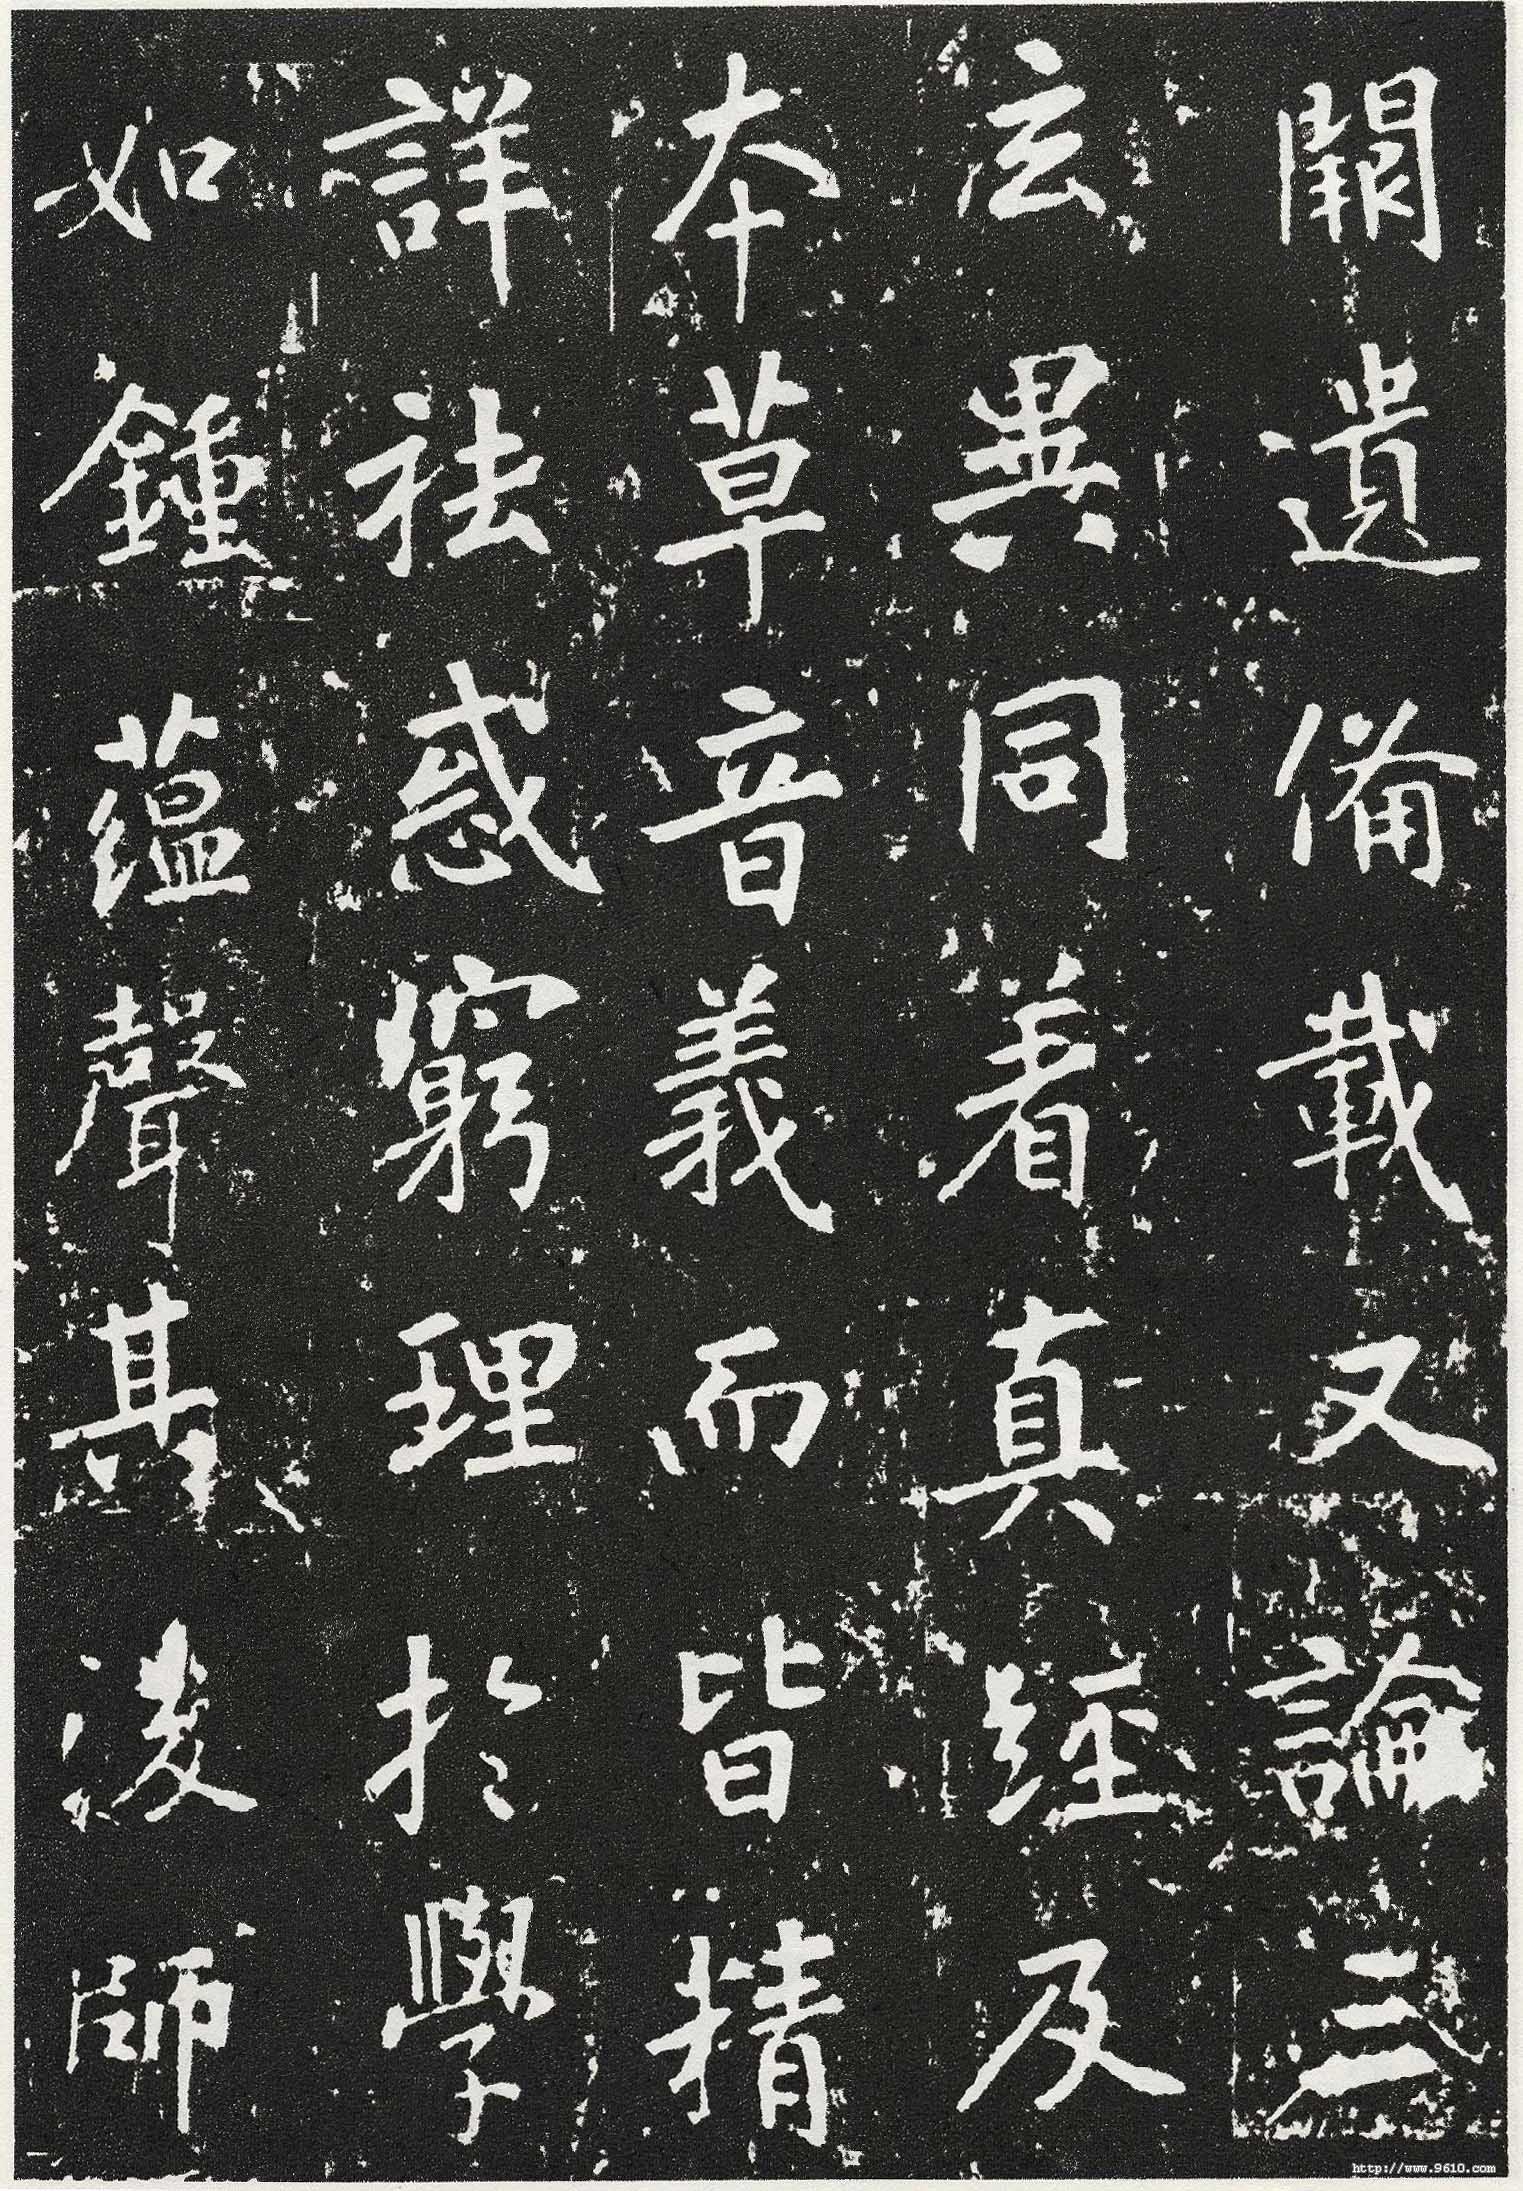 闕遺備載又論三
玄異同著真經及
本草音義而皆精
詳祛惑窮理於學
如鍾蘊聲其淩師
http://www.9610.com